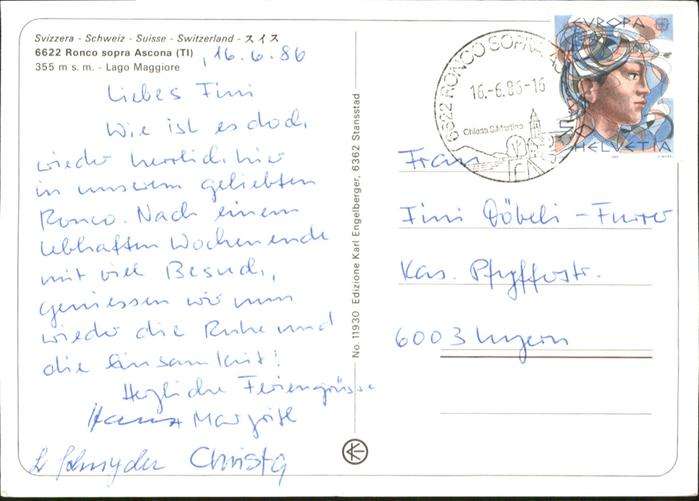 Svizzera - Schweiz - Suisse - Switzerland - スイス
6622 Ronco sopra Ascona (TI)
355 m s. m. - Lago Maggiore
, 16.6.86
Liebes Fini
Wie ist es doch
wieder herrlich hier
in unserem geliebten
Ronco. Nach einem
lebhaften Wochenende
mit viel Besuch,
geniessen wir nun
wieder die Ruhe und
die Einsamkeit!
Herzliche Feriengrüsse
Hans Margrit
Schnyder Christa
No. 11930 Edizione Karl Engelberger, 6362 Stansstad
6622 RONCO SOPRA
16.-6.86-16
Chiesa S. Martino
EUROPA
HELVETIA
Frau
Fini Döbeli-Furrer
Kas. Pfyfferstr.
6003 Luzern